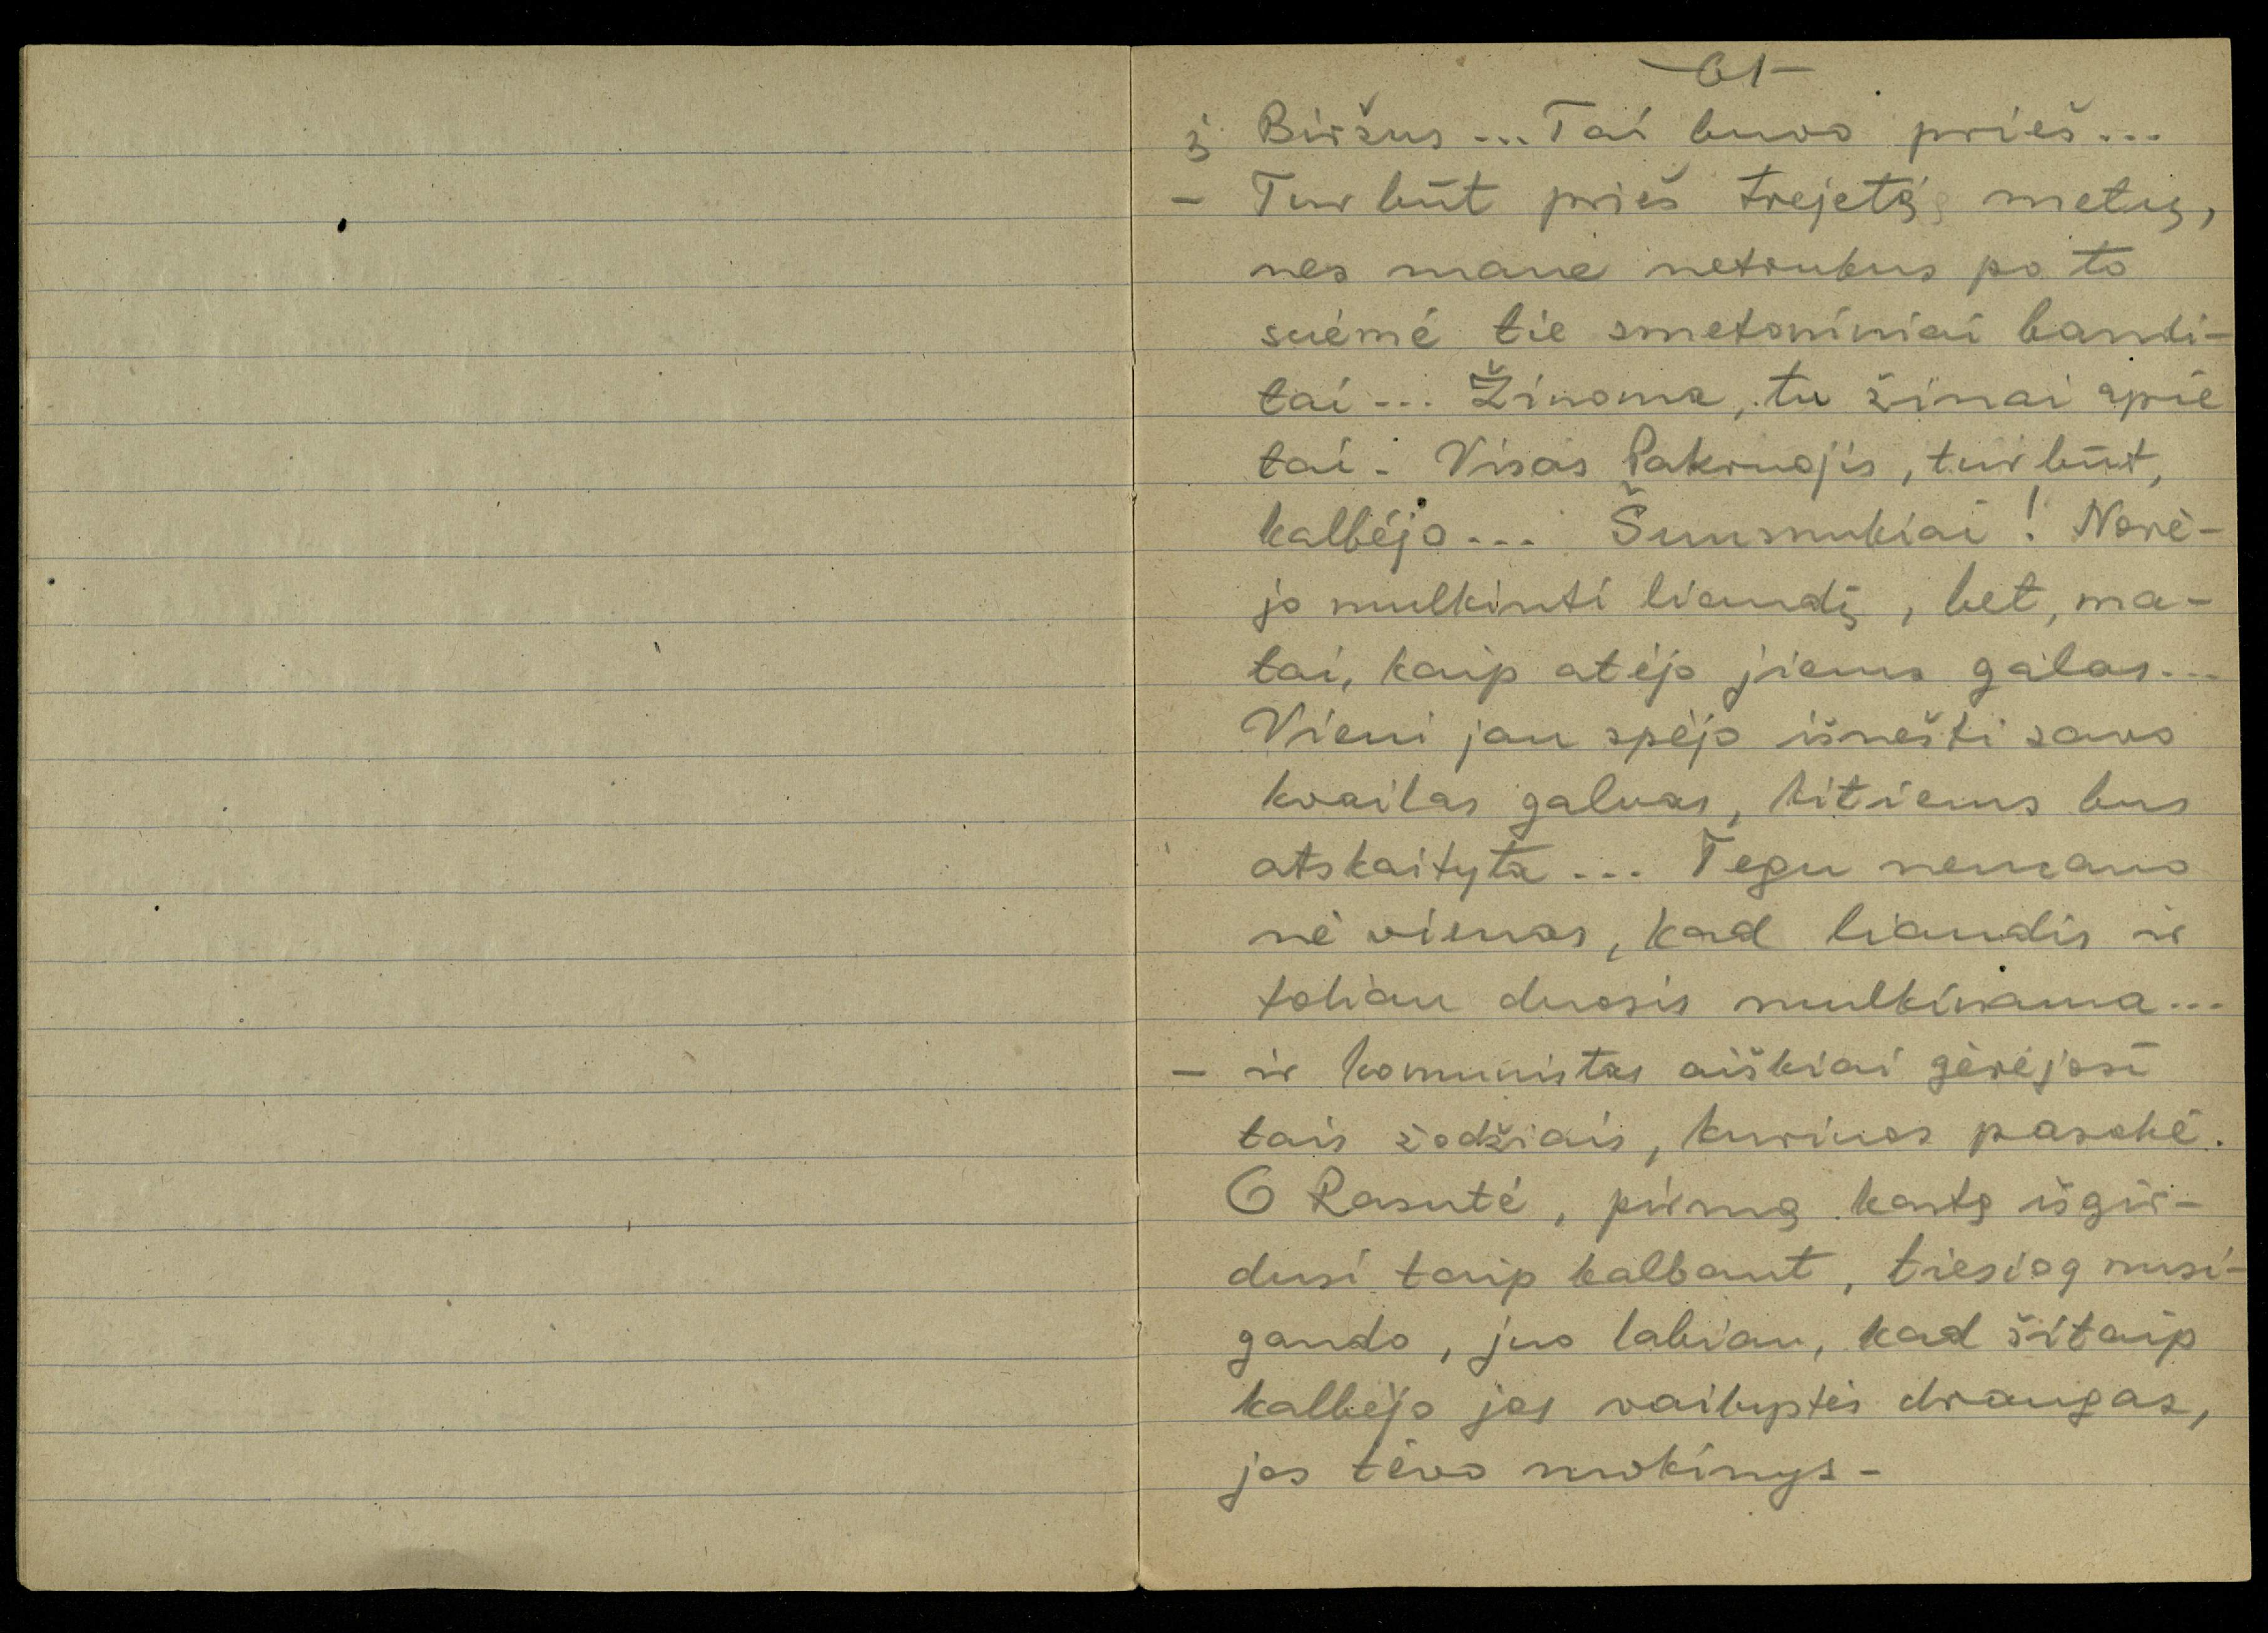 -61-
į Biržus... Tai buvo prieš...
- Tur būt prieš trejetą metų,
nes mane netrukus po to
suėmė tie smetoniniai bandi-
tai... Žinoma, tu žinai apie
tai. Visas Pakruojis, tur būt,
kalbėjo... Šunsnukiai! Norė-
jo mulkinti liaudį, bet, ma-
tai, kaip atėjo jiems galas...
Vieni jau spėjo išnešti savo
kvailas galvas, kitiems bus
atskaityta... Tegu nemano
nė vienas, kad liaudis ir
toliau duosis mulkinama...
- ir komunistas aiškiai gėrėjosi
tais žodžiais, kuriuos pasakė.
O Rasutė, pirmą kartą išgir-
dusi taip kalbant, tiesiog nusi-
gando, juo labiau, kad šitaip
kalbėjo jos vaikystės draugas,
jos tėvo mokinys-